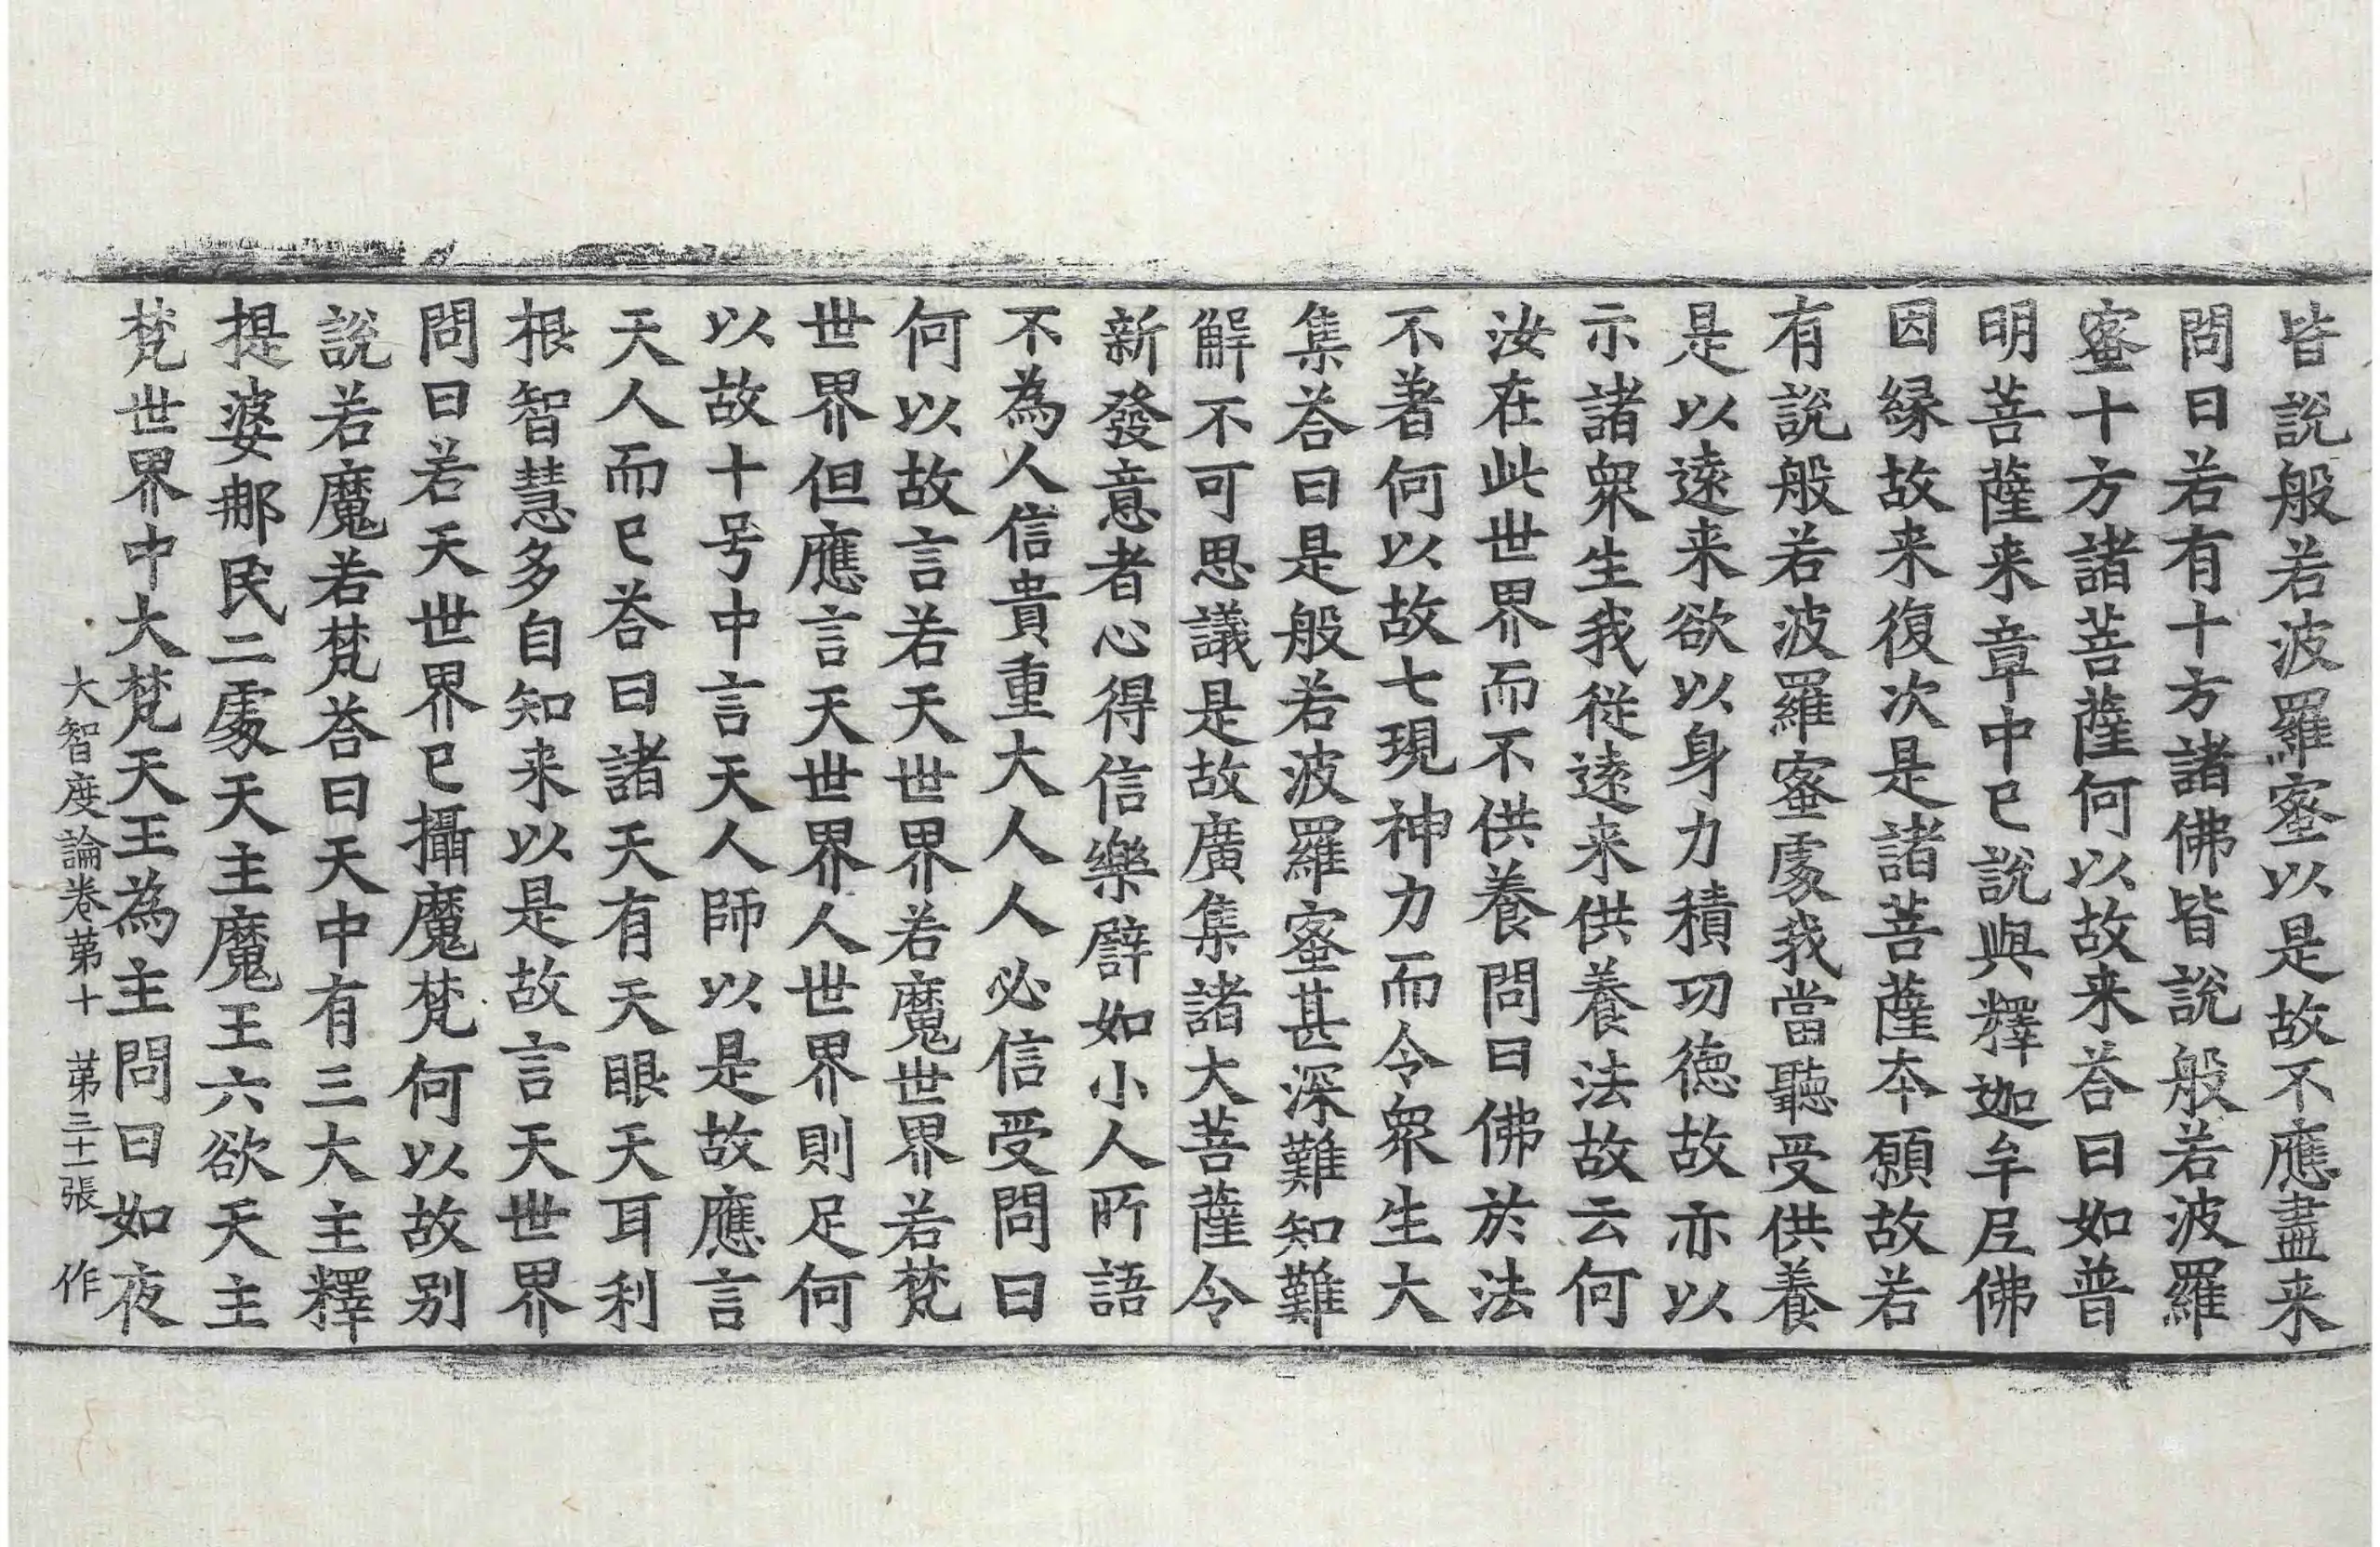 皆說般若波羅蜜以是故不應盡来
問曰若有十方諸佛皆說般若波羅
蜜十方諸菩薩何以故来荅曰如普
明菩薩来章中已說與釋迦牟尼佛
因縁故来復次是諸菩薩本願故若
有說般若波羅蜜處我當聽受供養
是以遠来欲以身力積功德故亦以
示諸衆生我從遠来供養法故云何
汝在此世界而不供養問曰佛於法
不著何以故七現神力而令衆生大
集荅曰是般若波羅蜜甚深難知難
解不可思議是故廣集諸大菩薩令
新發意者心得信樂譬如小人所語
不為人信貴重大人人必信受問曰
何以故言若天世界若魔世界若梵
世界但應言天世界人世界則足何
以故十号中言天人師以是故應言
天人而已荅曰諸天有天眼天耳利
根智慧多自知来以是故言天世界
問曰若天世界已攝魔梵何以故别
說若魔若梵荅曰天中有三大主釋
提婆那民二處天主魔王六欲天主
梵世界中大梵天王為主問曰如夜
大智度論卷苐十 苐三十一張 作